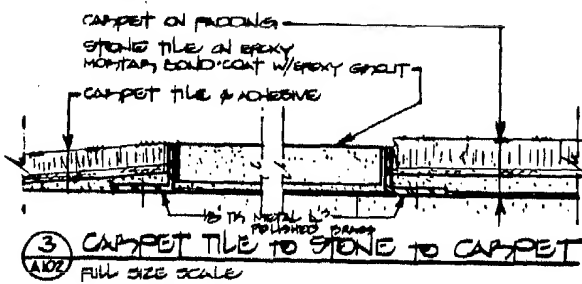 CARPET ON PADDING
STONE TILE ON EPOXY
MORTAR BOND COAT W/EPOXY GROUT
CARPET TILE & ADHESIVE
1/8" TK METAL L'S
POLISHED BRASS
3
A102
CARPET TILE TO STONE TO CARPET
FULL SIZE SCALE